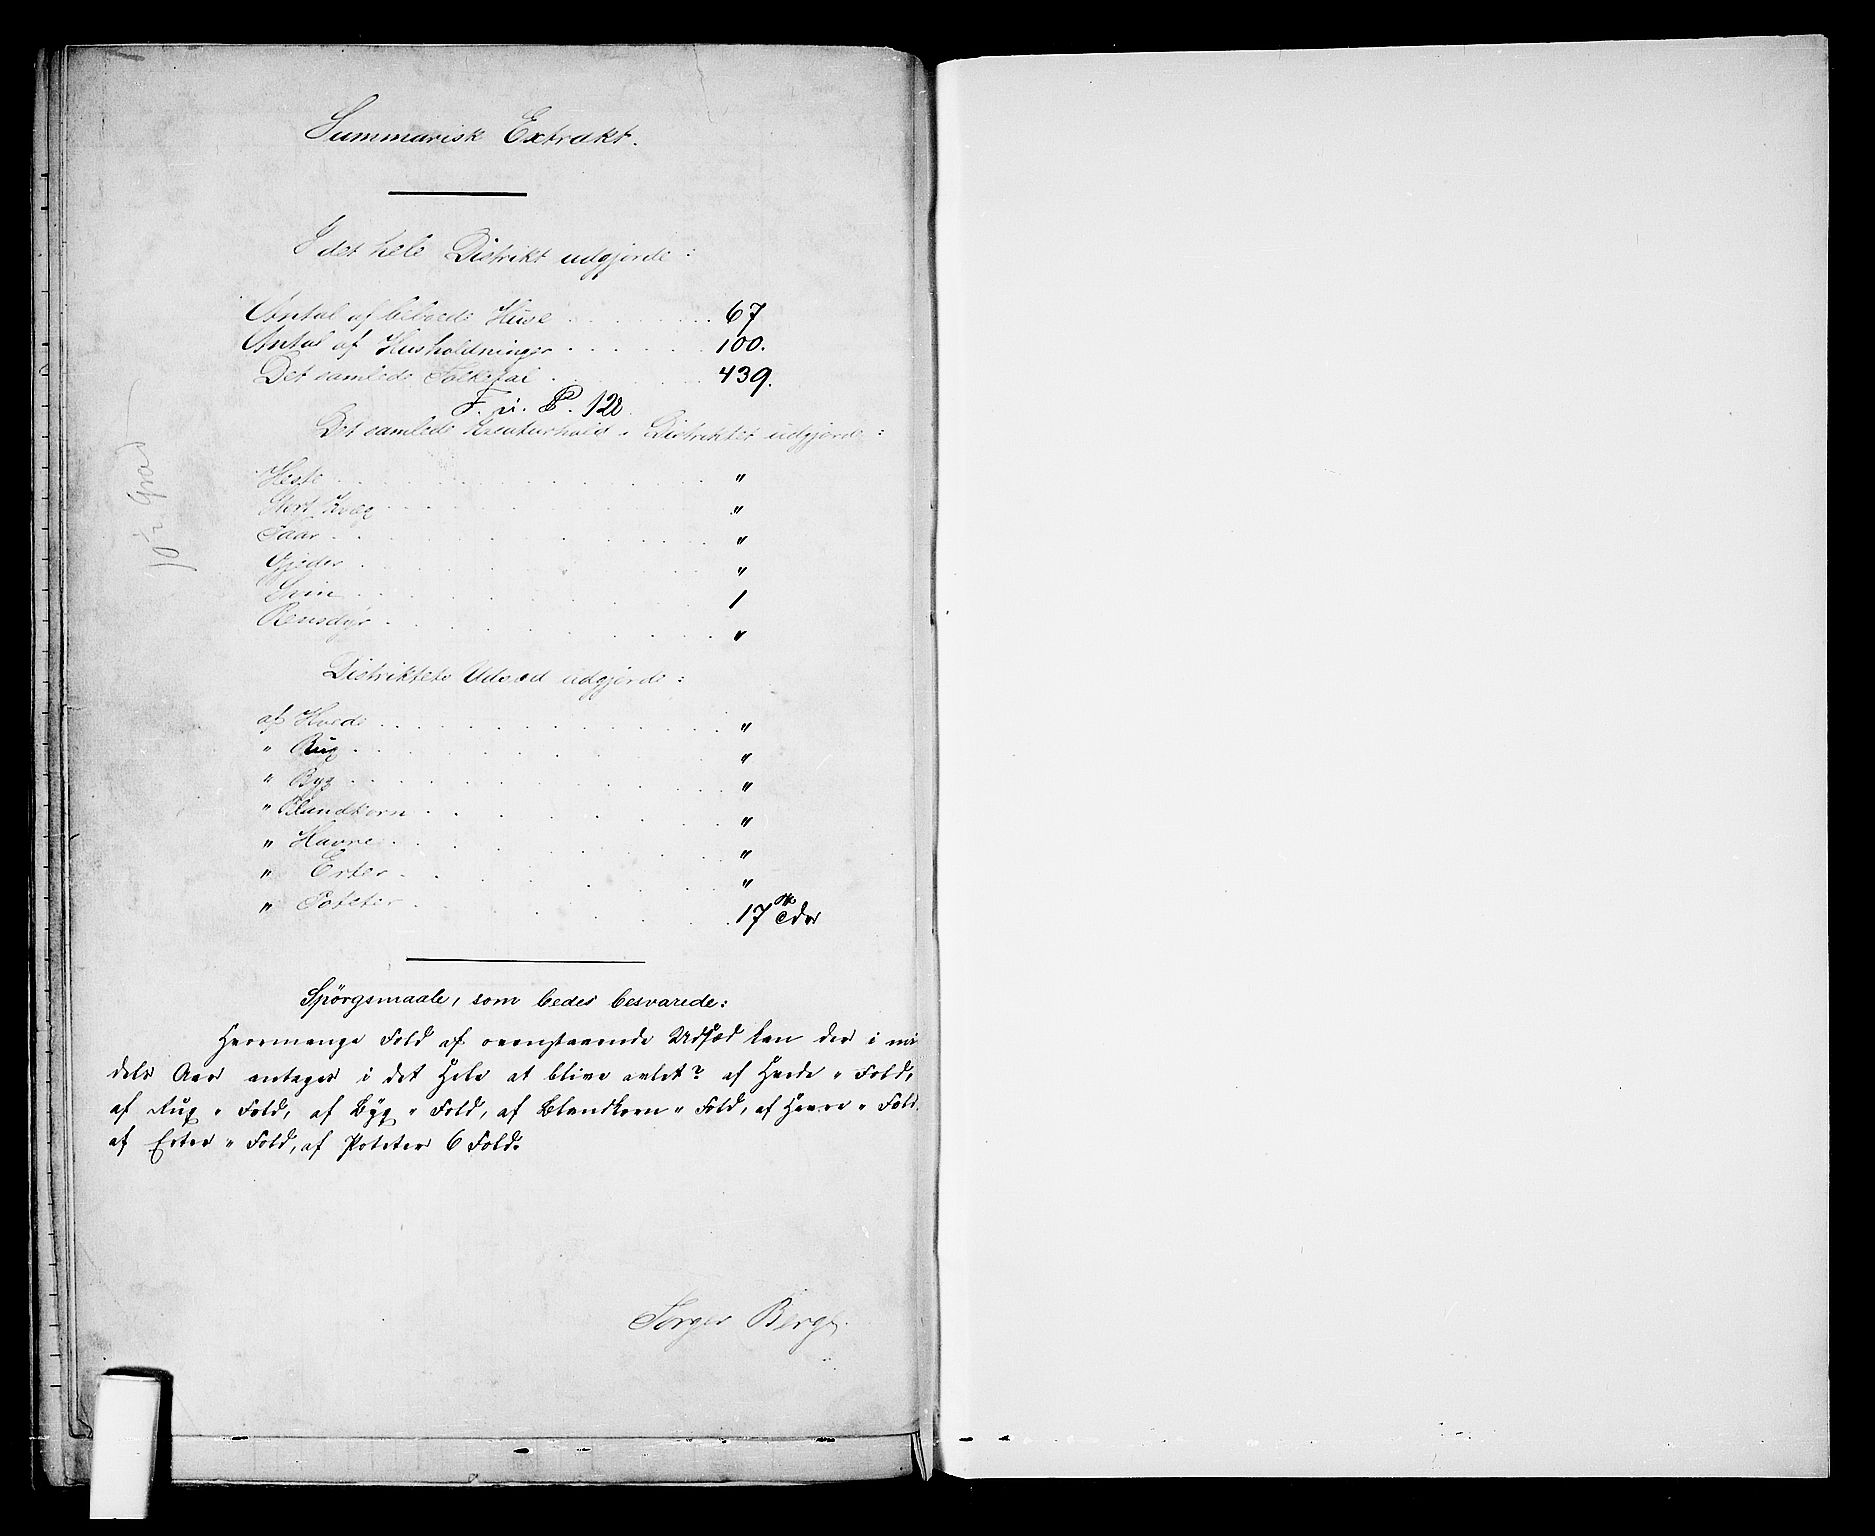 Summarisk Extrakt.
I det hele Distrikt udgjorde:
Antal af beboede Huse . . . . . . 67
Antal af Husholdninger . . . . . . 100.
Det samlede Folketal . . . . . . 439.
F. u. P. 120.
Det samlede Kreaturhold i Distriktet udgjorde:
Heste . . . . . . "
Stort Kvæg . . . . . . "
Faar . . . . . . "
Gjeder . . . . . . "
Svin . . . . . . 1
Rensdyr . . . . . . "
Distriktets Udsæd udgjorde:
af Hvede . . . . . . "
" Rug . . . . . . "
" Byg . . . . . . "
" Blandkorn . . . . . . "
" Havre . . . . . . "
" Erter . . . . . . "
" Poteter . . . . . . 17 Tdr
Spörgsmaale, som bedes besvarede:
Hvormange Fold af ovenstaaende Udsæd kan der i mid
dels Aar antages i det Hele at blive avlet? af Hvede " Fold,
af Rug " Fold, af Byg " Fold, af Blandkorn " Fold, af Havre " Fold,
af Erter " Fold, af Poteter 6 Fold.
Torger Berge.